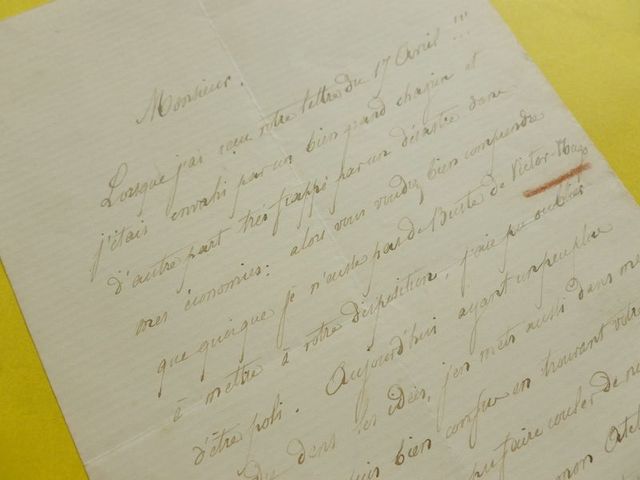 Monsieur.
Lorsque j'ai reçu votre lettre du 17 Avril !!!
j'étais envahi par un bien grand chagrin et
d'autre part très frappé par un désastre dans
mes économies: alors vous voudrez bien comprendre
que quoique je n'eusse pas de Buste de Victor-Hugo
à mettre à votre disposition, j'aie pu oublier
d'être poli. Aujourd'hui ayant un peu plus
dans les idées, j'en mets aussi dans me
bien confus en trouvant votre
faire couler de
mon Atel